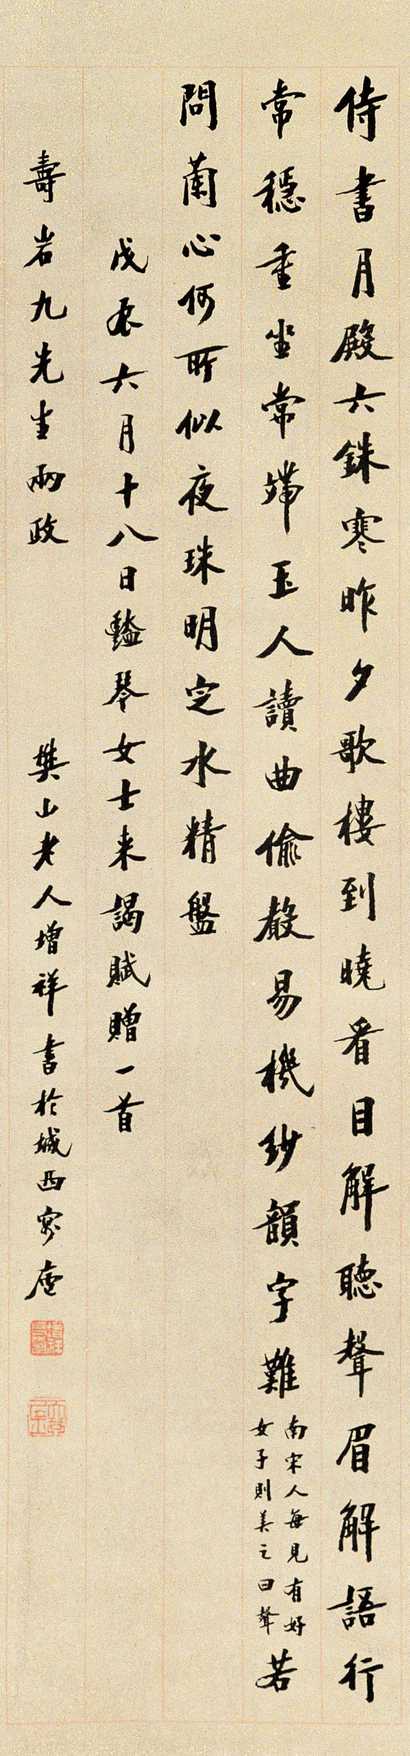 侍書月殿六銖寒昨夕歌樓到曉看目解聽聲眉解語行
常穩重坐常端玉人讀曲偷聲易機紗韻字難
南宋人每見有好
女子則美之曰
若
問蘭心何所似夜珠明定水精盤
戊辰六月十八日豔琴女士来謁賦贈一首
壽岩九先生兩政
樊山老人增祥書於城西庵